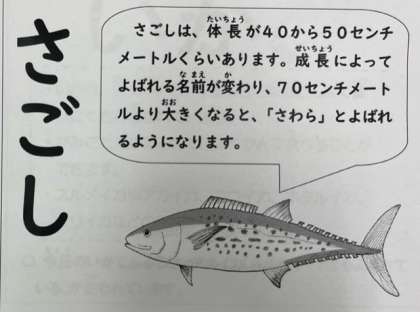 さごし
さごしは、体長が４０から５０センチ
メートルくらいあります。成長によって
よばれる名前が変わり、７０センチメート
ルより大きくなると、「さわら」とよばれ
るようになります。